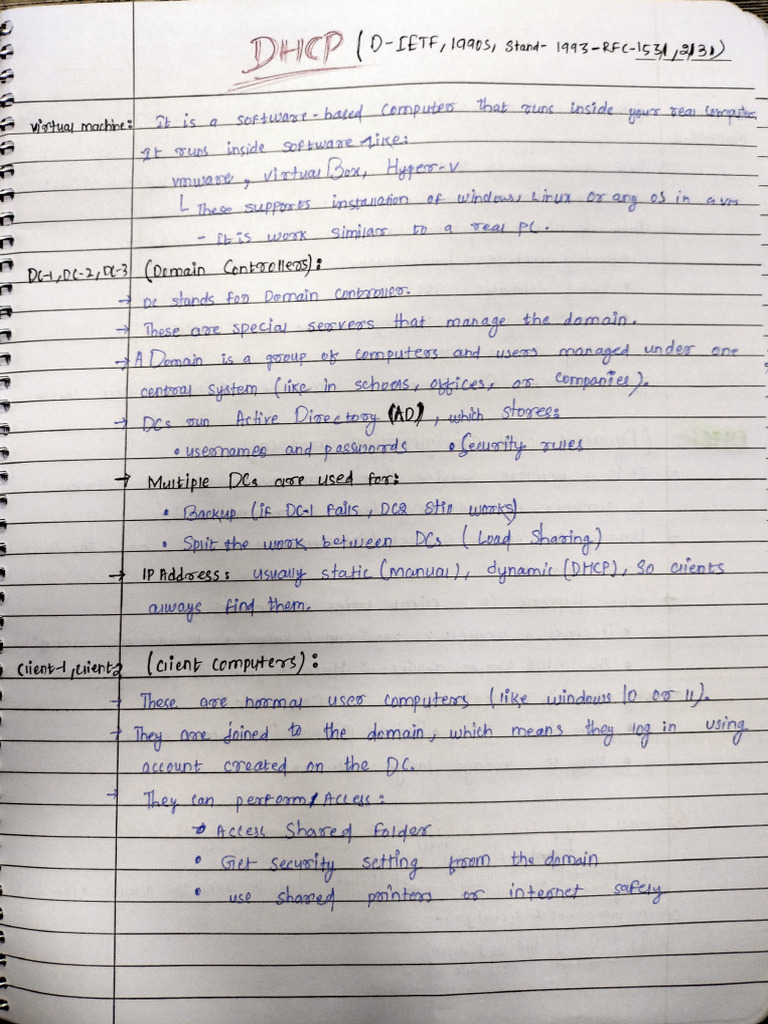 DHCP (D-IETF, 1990s, Stand- 1993-RFC-1531, 2131)
Virtual machine: It is a software-based computer that runs inside your real computer.
It runs inside software like:
vmware, VirtualBox, Hyper-V
└ These supports installation of windows, Linux or any OS in a vm
- It is work similar to a real PC.
DC-1, DC-2, DC-3 (Domain Controllers):
→ DC stands for Domain controller.
→ These are special servers that manage the domain.
→ A Domain is a group of computers and users managed under one
central system (like in schools, offices, or companies).
→ DCs run Active Directory (AD), which stores:
• usernames and passwords • Security rules
→ Multiple DCs are used for:
• Backup (if DC-1 fails, DC2 still works)
• Split the work between DCs (Load Sharing)
→ IP Address: usually static (manual), dynamic (DHCP), So clients
always find them.
Client-1, Client2 (Client Computers):
→ These are normal user computers (like windows 10 or 11).
→ They are joined to the domain, which means they log in using
account created on the DC.
→ They can perform/Access:
→ Access Shared Folder
• Get security setting from the domain
• use shared printers or internet safely